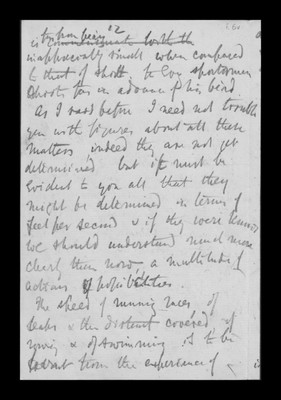 is commensurate with the
inappreciably small when compared
to that of shot; to Cov sportsmen
shoots far in advance of his bird.
As I said before I need not trouble
you with figures about all these
matters indeed they are not yet
determined but it must be
evident to you all that they
might be determined in terms of
feet per second & if they were known
we should understand much more
clearly than now, a multitude of
actions & possibilities.
The speed of running races of
leaps & the distant covered of
rowing & of swimming is to be
from the experience of